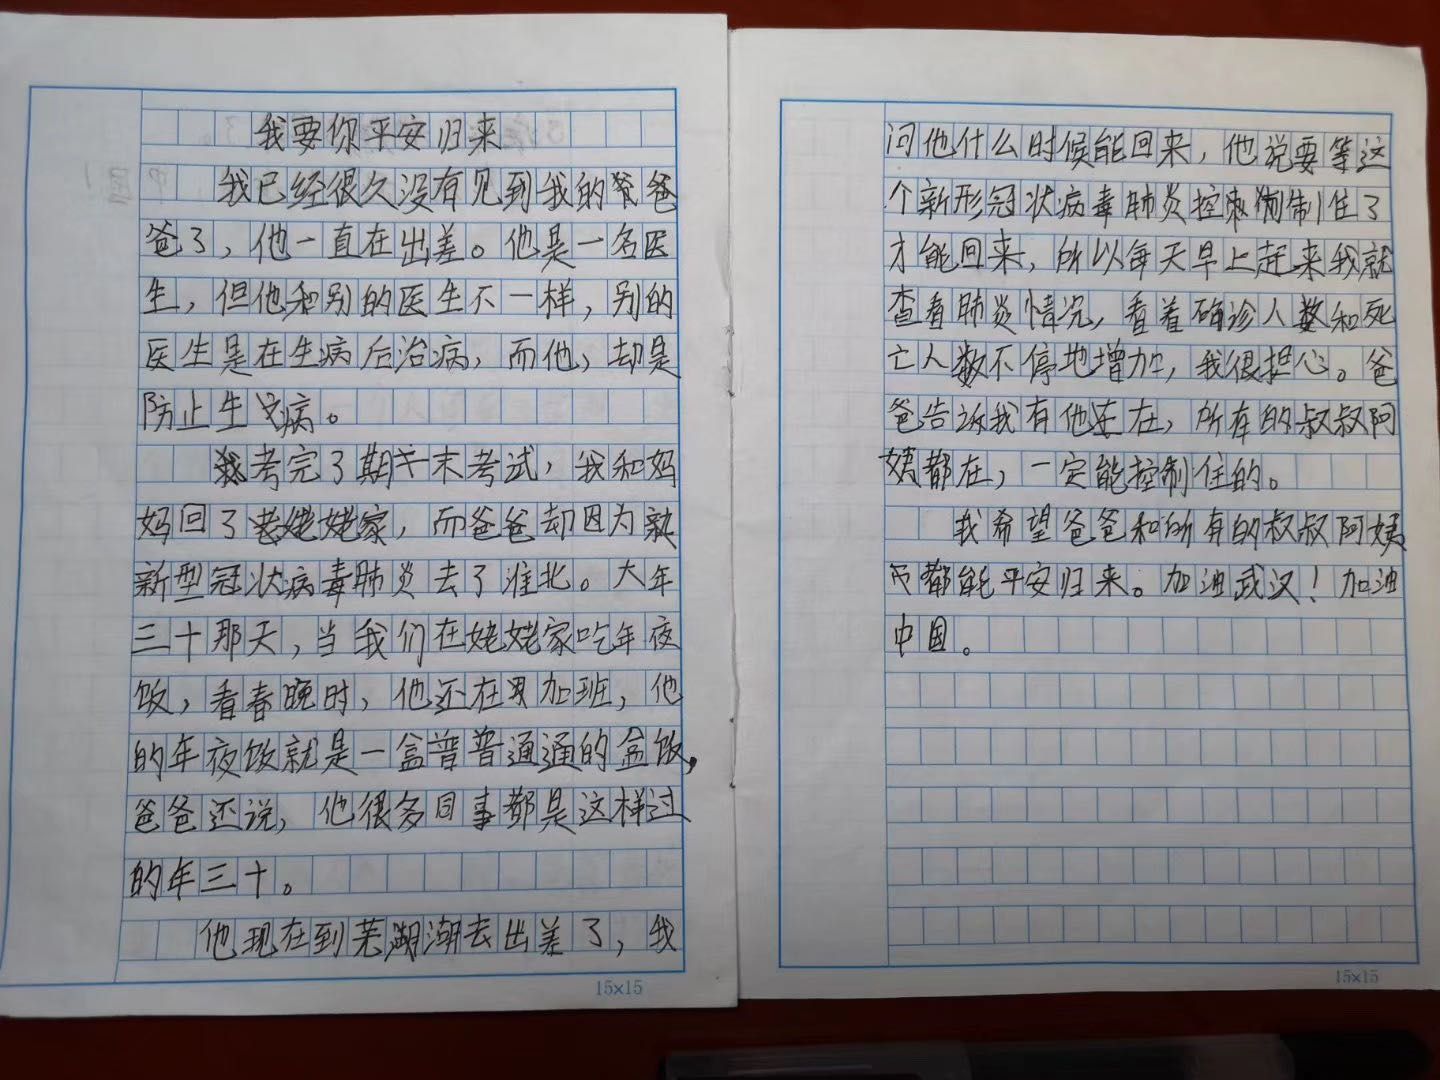 我要你平安归来
我已经很久没有见到我的爸
爸了，他一直在出差。他是一名医
生，但他和别的医生不一样，别的
医生是在生病后治病，而他，却是
防止生病。
我考完了期末考试，我和妈
妈回了姥姥家，而爸爸却因为
新型冠状病毒肺炎去了淮北。大年
三十那天，当我们在姥姥家吃年夜
饭，看春晚时，他还在加班，他
的年夜饭就是一盒普普通通的盒饭，
爸爸还说，他很多同事都是这样过
的年三十。
他现在到芜湖去出差了，我
15×15
问他什么时候能回来，他说要等这
个新形冠状病毒肺炎控制住了
才能回来，所以每天早上起来我就
查看肺炎情况，看着确诊人数和死
亡人数不停地增加，我很担心。爸
爸告诉我有他在，所有的叔叔阿
姨都在，一定能控制住的。
我希望爸爸和所有的叔叔阿姨
都能平安归来。加油武汉！加油
中国。
15×15